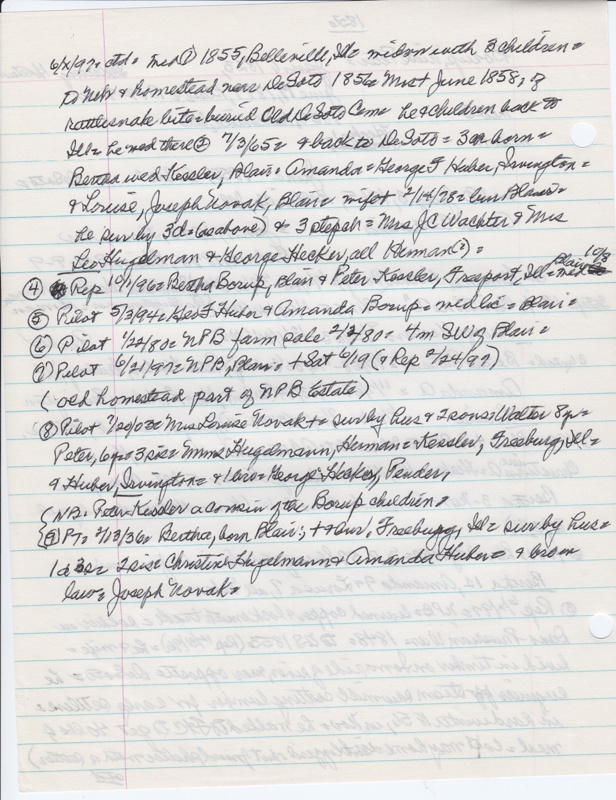 6/x/97= ctd= med ① 1855, Belleville, Ill= widow with 3 children=
to Nebr & homestead near DeSoto 1856= Mrs + June 1858, of
rattlesnake bite= buried Old DeSoto Cem= he & children back to
Ill= he med there ② 7/3/65= & back to DeSoto= 3 ch born=
Bertha wed Kessler, Blair= Amanda= George F Huber, Irvington=
& Louise, Joseph Novak, Blair= wife + 2/14/78= bur Blair=
he surv by 3d= (as above) & 3 stepch= Mrs JC Wachter & Mrs
Leo Hugelman & George Hecker, all Herman (?)=
④ Rep 10/1/96= Bertha Borup, Blair & Peter Kessler, Freeport, Ill= med Blair 10/3
⑤ Pilot 5/3/94= Geo F Huber & Amanda Borup= med lic= Blair=
⑥ Pilot 1/22/80= NPB farm sale 2/3/80= 4m SW of Blair=
⑦ Pilot 6/21/97= NPB, Blair= + Sat 6/19 (& Rep 2/24/97)
(old homestead part of NPB Estate)
⑧ Pilot Mrs Louise Novak += surv by hus & 2 sons= Walter 8y=
Peter, 6y= 3 sis= Mmes Hugelmann, Herman= Kessler, Freeburg, Ill=
& Huber, Irvington= & 1 bro= George Hecker, Pender,
(NB: Peter Kessler a cousin of the Borup children=
⑨ PT= 2/13/36= Bertha, born Blair; + & bur, Freeburg, Ill= surv by hus=
1d 3s= 2 sis= Christine Hugelmann & Amanda Huber= & bro in
law= Joseph Novak=